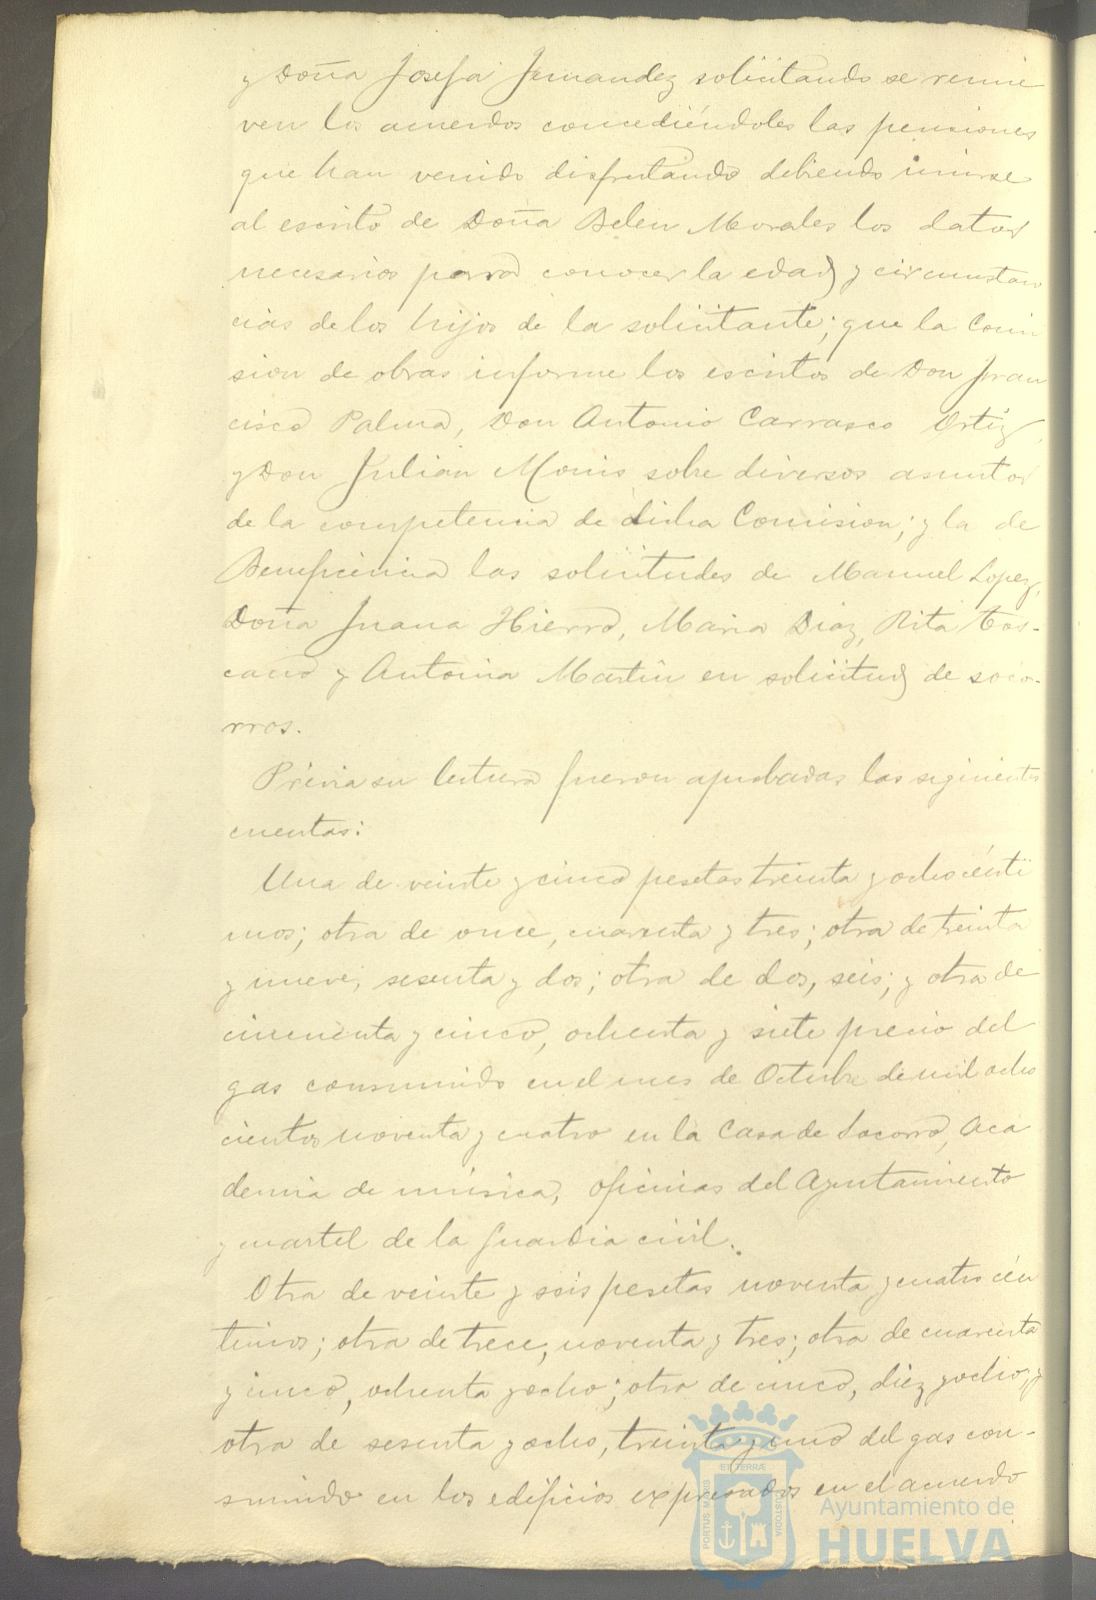 y Doña Josefa Fernandez solicitando se renue
ven los acuerdos concediéndoles las pensiones
que han venido disfrutando debiendo unirse
al escrito de Doña Belen Morales los datos
necesarios para conocer la edad y circunstan
cias de los hijos de la solicitante; que la Comi
sion de obras informe los escritos de Don Fran
cisco Palma, Don Antonio Carrasco Ortiz,
y Don Julian Monis sobre diversos asuntos
de la competencia de dicha Comision; y la de
Beneficencia las solicitudes de Manuel Lopez,
Doña Juana Hierro, Maria Diaz, Rita Tos-
cano y Antonia Martin en solicitud de soco-
rros.
Prévia su lectura fueron aprobadas las siguientes
cuentas:
Una de veinte y cinco pesetas treinta y ocho cénti
mos; otra de once, cuarenta y tres; otra de treinta
y nueve, sesenta y dos; otra de dos, seis; y otra de
cincuenta y cinco, ochenta y siete precio del
gas consumido en el mes de Octubre de mil ocho
cientos noventa y cuatro en la Casa de Socorro, Aca
demia de música, oficinas del Ayuntamiento
y cuartel de la Guardia civil.
Otra de veinte y seis pesetas noventa y cuatro cén
timos; otra de trece, noventa y tres; otra de cuarenta
y cinco, ochenta y ocho; otra de cinco, diez y ocho, y
otra de sesenta y ocho, treinta y uno del gas con-
sumido en los edificios expresados en el acuerdo
PORTUS MARIS ET TERRÆ CUSTODIA
Ayuntamiento de
HUELVA